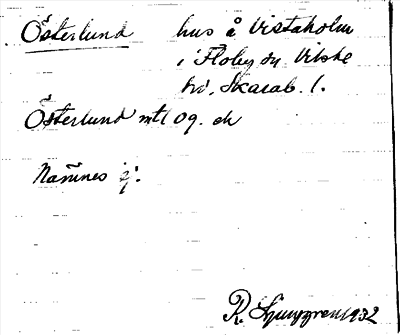 Österlund hus å Vistaholm
i Floby sn Vilske
hd. Skarab. l.
Österlund mtl og. ek
Namnes ej.
R. Ljunggren 1932